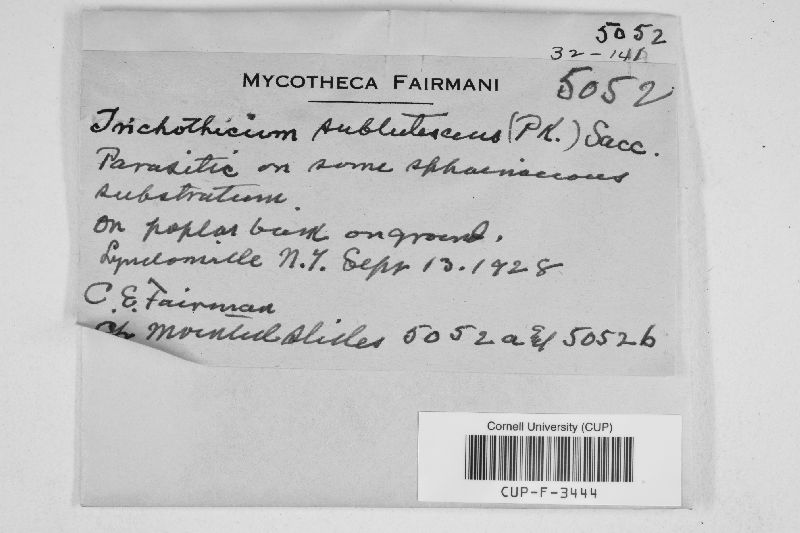 5052
32-141
MYCOTHECA FAIRMANI
5052
Trichothicium sublutescens (Pk.) Sacc.
Parasitic on some sphaeriaceous
substratum.
On poplar bark on ground.
Lyndonville N.Y. Sept 13. 1928
C. E. Fairman
Mounted slides 5052a & 5052b
Cornell University (CUP)
CUP-F-3444